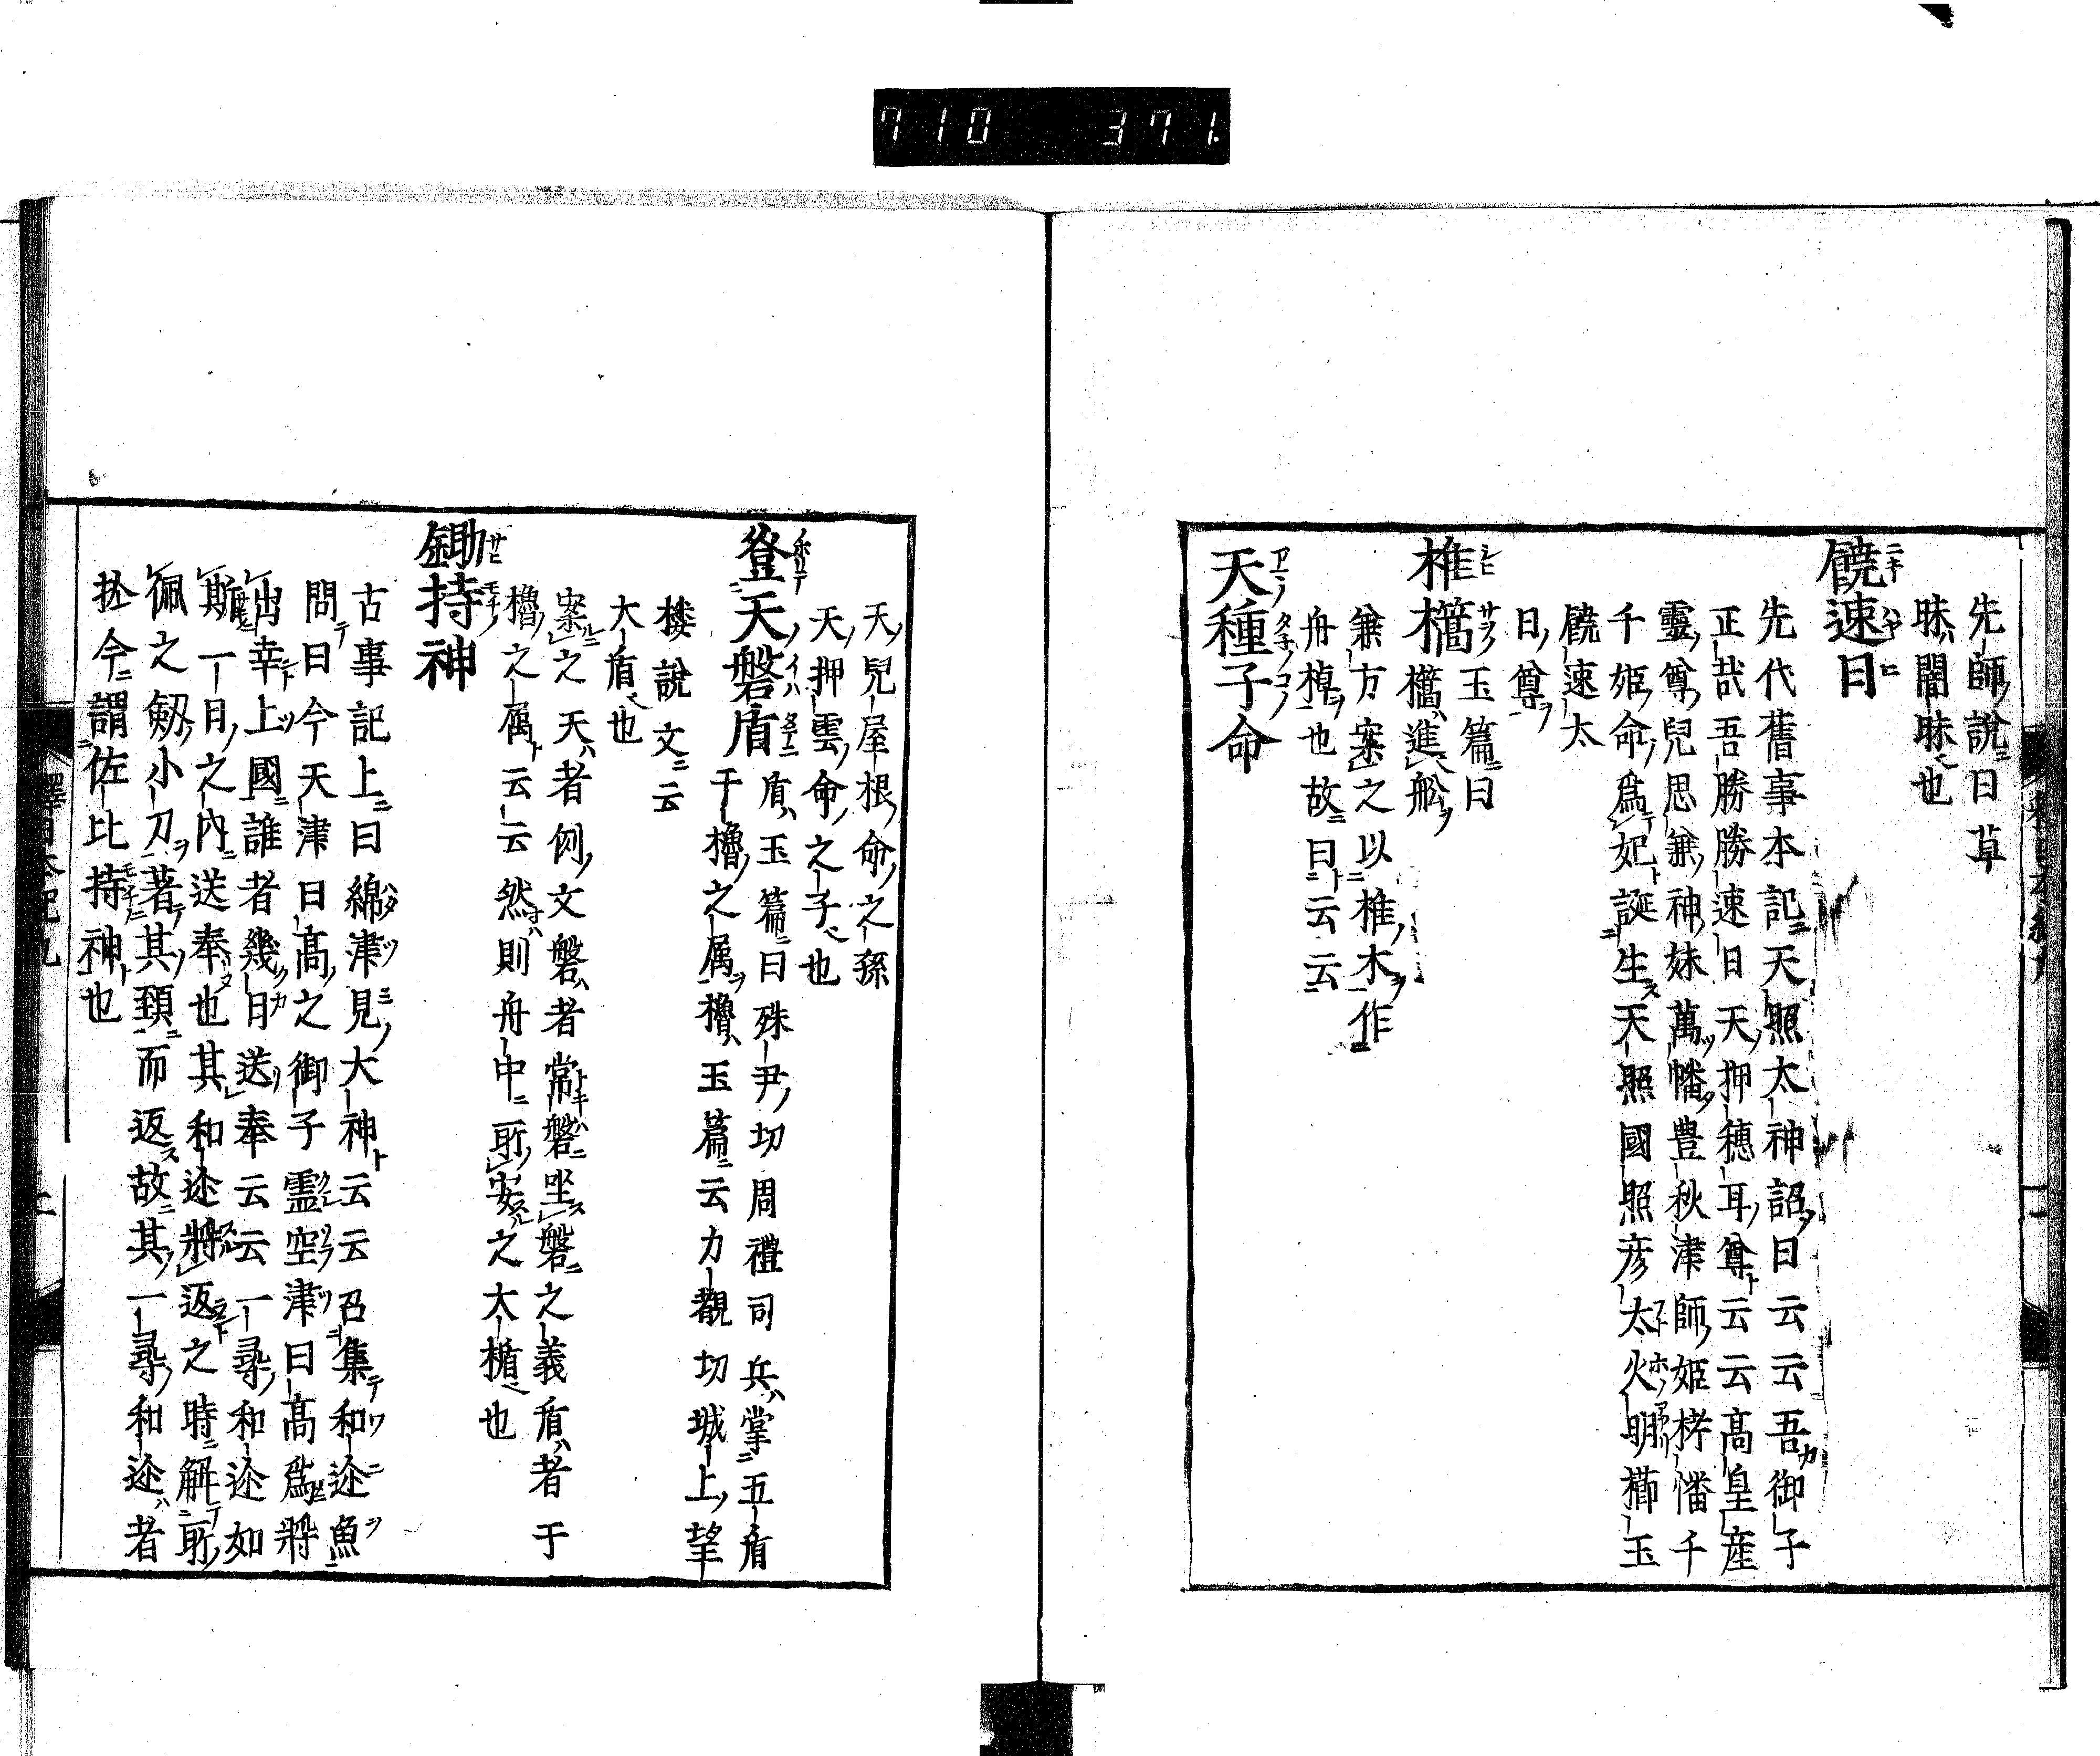 710 371.
先師説曰草
昧闇昧也
饒速日
先代舊事本記天照太神詔曰云云吾御子
正哉吾勝勝速日天押穗耳尊云云高皇産
靈尊兒思兼神妹萬幡豊秋津師姫栲幡千
千姫命爲妃誕生天照國照彦太火明櫛玉
饒速太
日尊
椎㰏玉篇曰
㰏進舩
兼方案之以椎木作
舟棹也故曰云云
天種子命
天兒屋根命之孫
天押雲命之子也
登天磐盾盾玉篇曰殊尹切周禮司兵掌五盾
干櫓之属櫓玉篇云力覩切城上望
楼説文云
大盾也
案之天者例文磐者常磐坐磐之義盾者于
櫓之属云云然則舟中所安之大楯也
鋤持神
古事記上曰綿津見大神云云召集和迩魚
問曰今天津日高之御子霊空津日高爲將
出幸上國誰者幾日送奉云云一尋和迩如
斯一日之内送奉也其和迩將返之時解所
佩之劔小刀著其頚而返故其一尋和迩者
於今謂佐比持神也
釋日本紀九